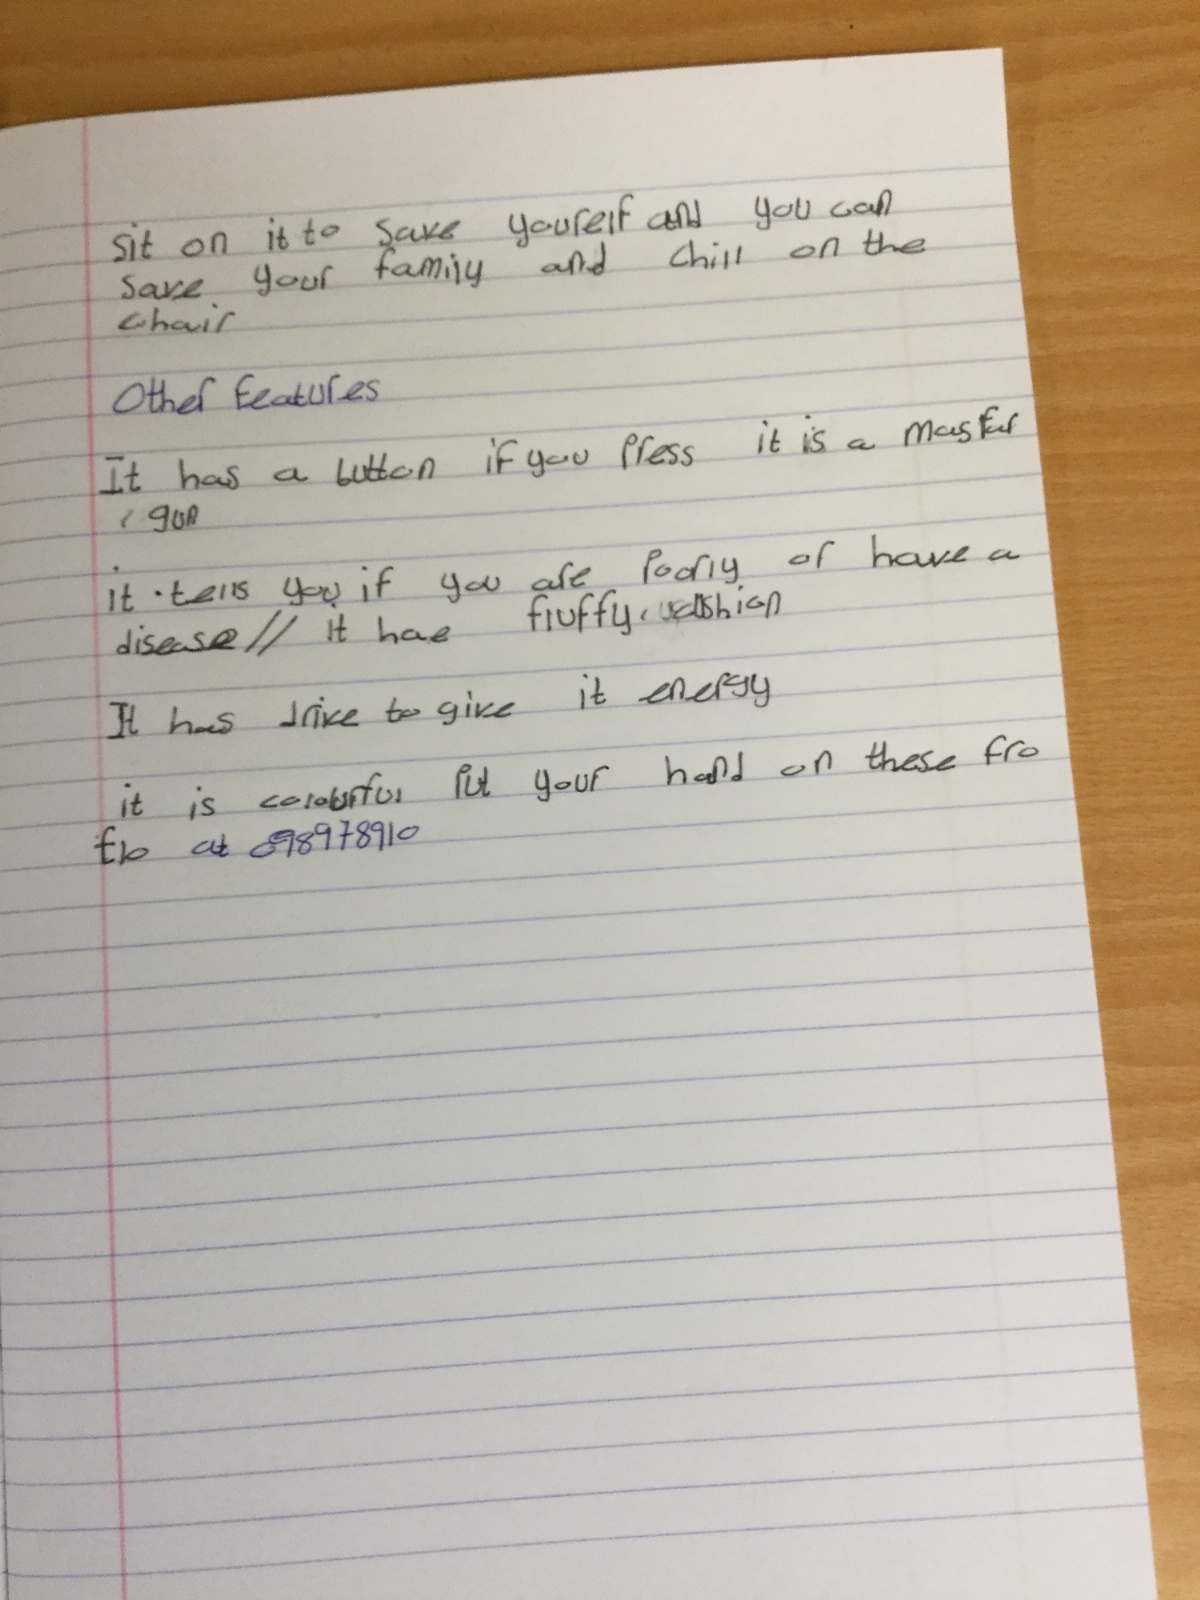 sit on it to save yourelf and you can
save your family and chill on the
chair
Other features
It has a button if you press it is a
gun
it tells you if you are poorly or have a
disease// it has fluffy cushion
It has drive to give it energy
it is colourful Put your hand on these fro
at 098978910